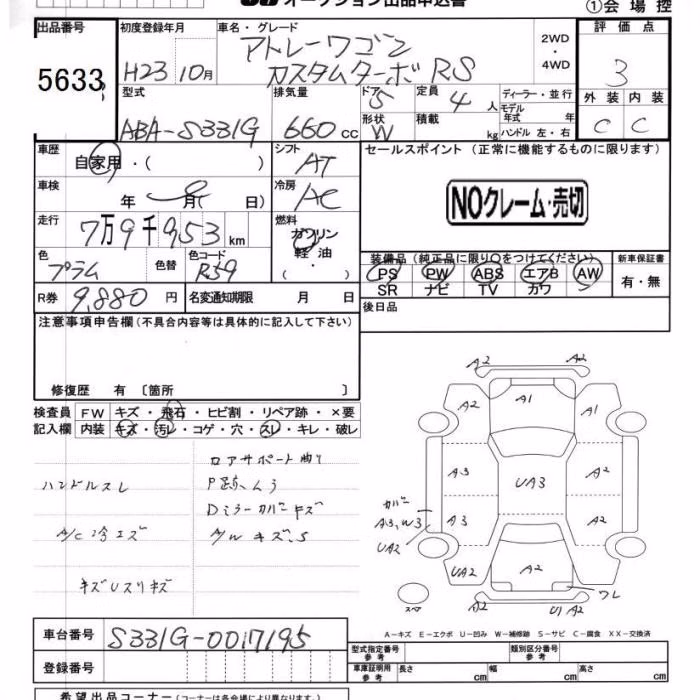 オークション出品申込書
①会場控
出品番号 初度登録年月 車名・グレード 評価点
5633 H23 10月 アトレーワゴン カスタムターボRS 2WD・4WD 3
型式 排気量 ドア 定員 ディーラー・並行 外装 内装
ABA-S331G 660cc 5 4人 モデル年式 年 C C
形状 積載
W kg ハンドル 左・右
車歴 自家用・( ) シフト AT セールスポイント(正常に機能するものに限ります)
車検 年 月( 日) 冷房 AC NOクレーム・売切
走行 7万9千953km 燃料 ガソリン
軽油
・( )
色 プラム 色替 色コード R59
装備品(純正品に限り○をつけてください) 新車保証書
PS PW ABS エアB AW 有・無
SR ナビ TV カワ
R券 9,880円 名変通知期限 月 日 後日品
注意事項申告欄(不具合内容等は具体的に記入して下さい)
修復歴 有〔箇所 〕
検査員 FW キズ・飛石・ヒビ割・リペア跡・×要
記入欄 内装 キズ・汚レ・コゲ・穴・スレ・キレ・破レ
ロアサポート曲り
ハンドルスレ
Dミラーカバーキズ
A/C冷エズ A/WキズS
A2 A2
A2 A1 A1
A3 UA3 A2
カバー
A3,W3 A3 A2
UA2 UA2 A2
ワレ
スペア A2 U1 A2
A-キズ E-エクボ U-凹み W-補修跡 S-サビ C-腐食 XX-交換済
車台番号 S331G-0017195
型式指定番号 参考 類別区分番号 参考
登録番号 車庫証明用 参考 長さ cm 幅 cm 高さ cm
希望出品コーナー(コーナーは各会場により異なります)